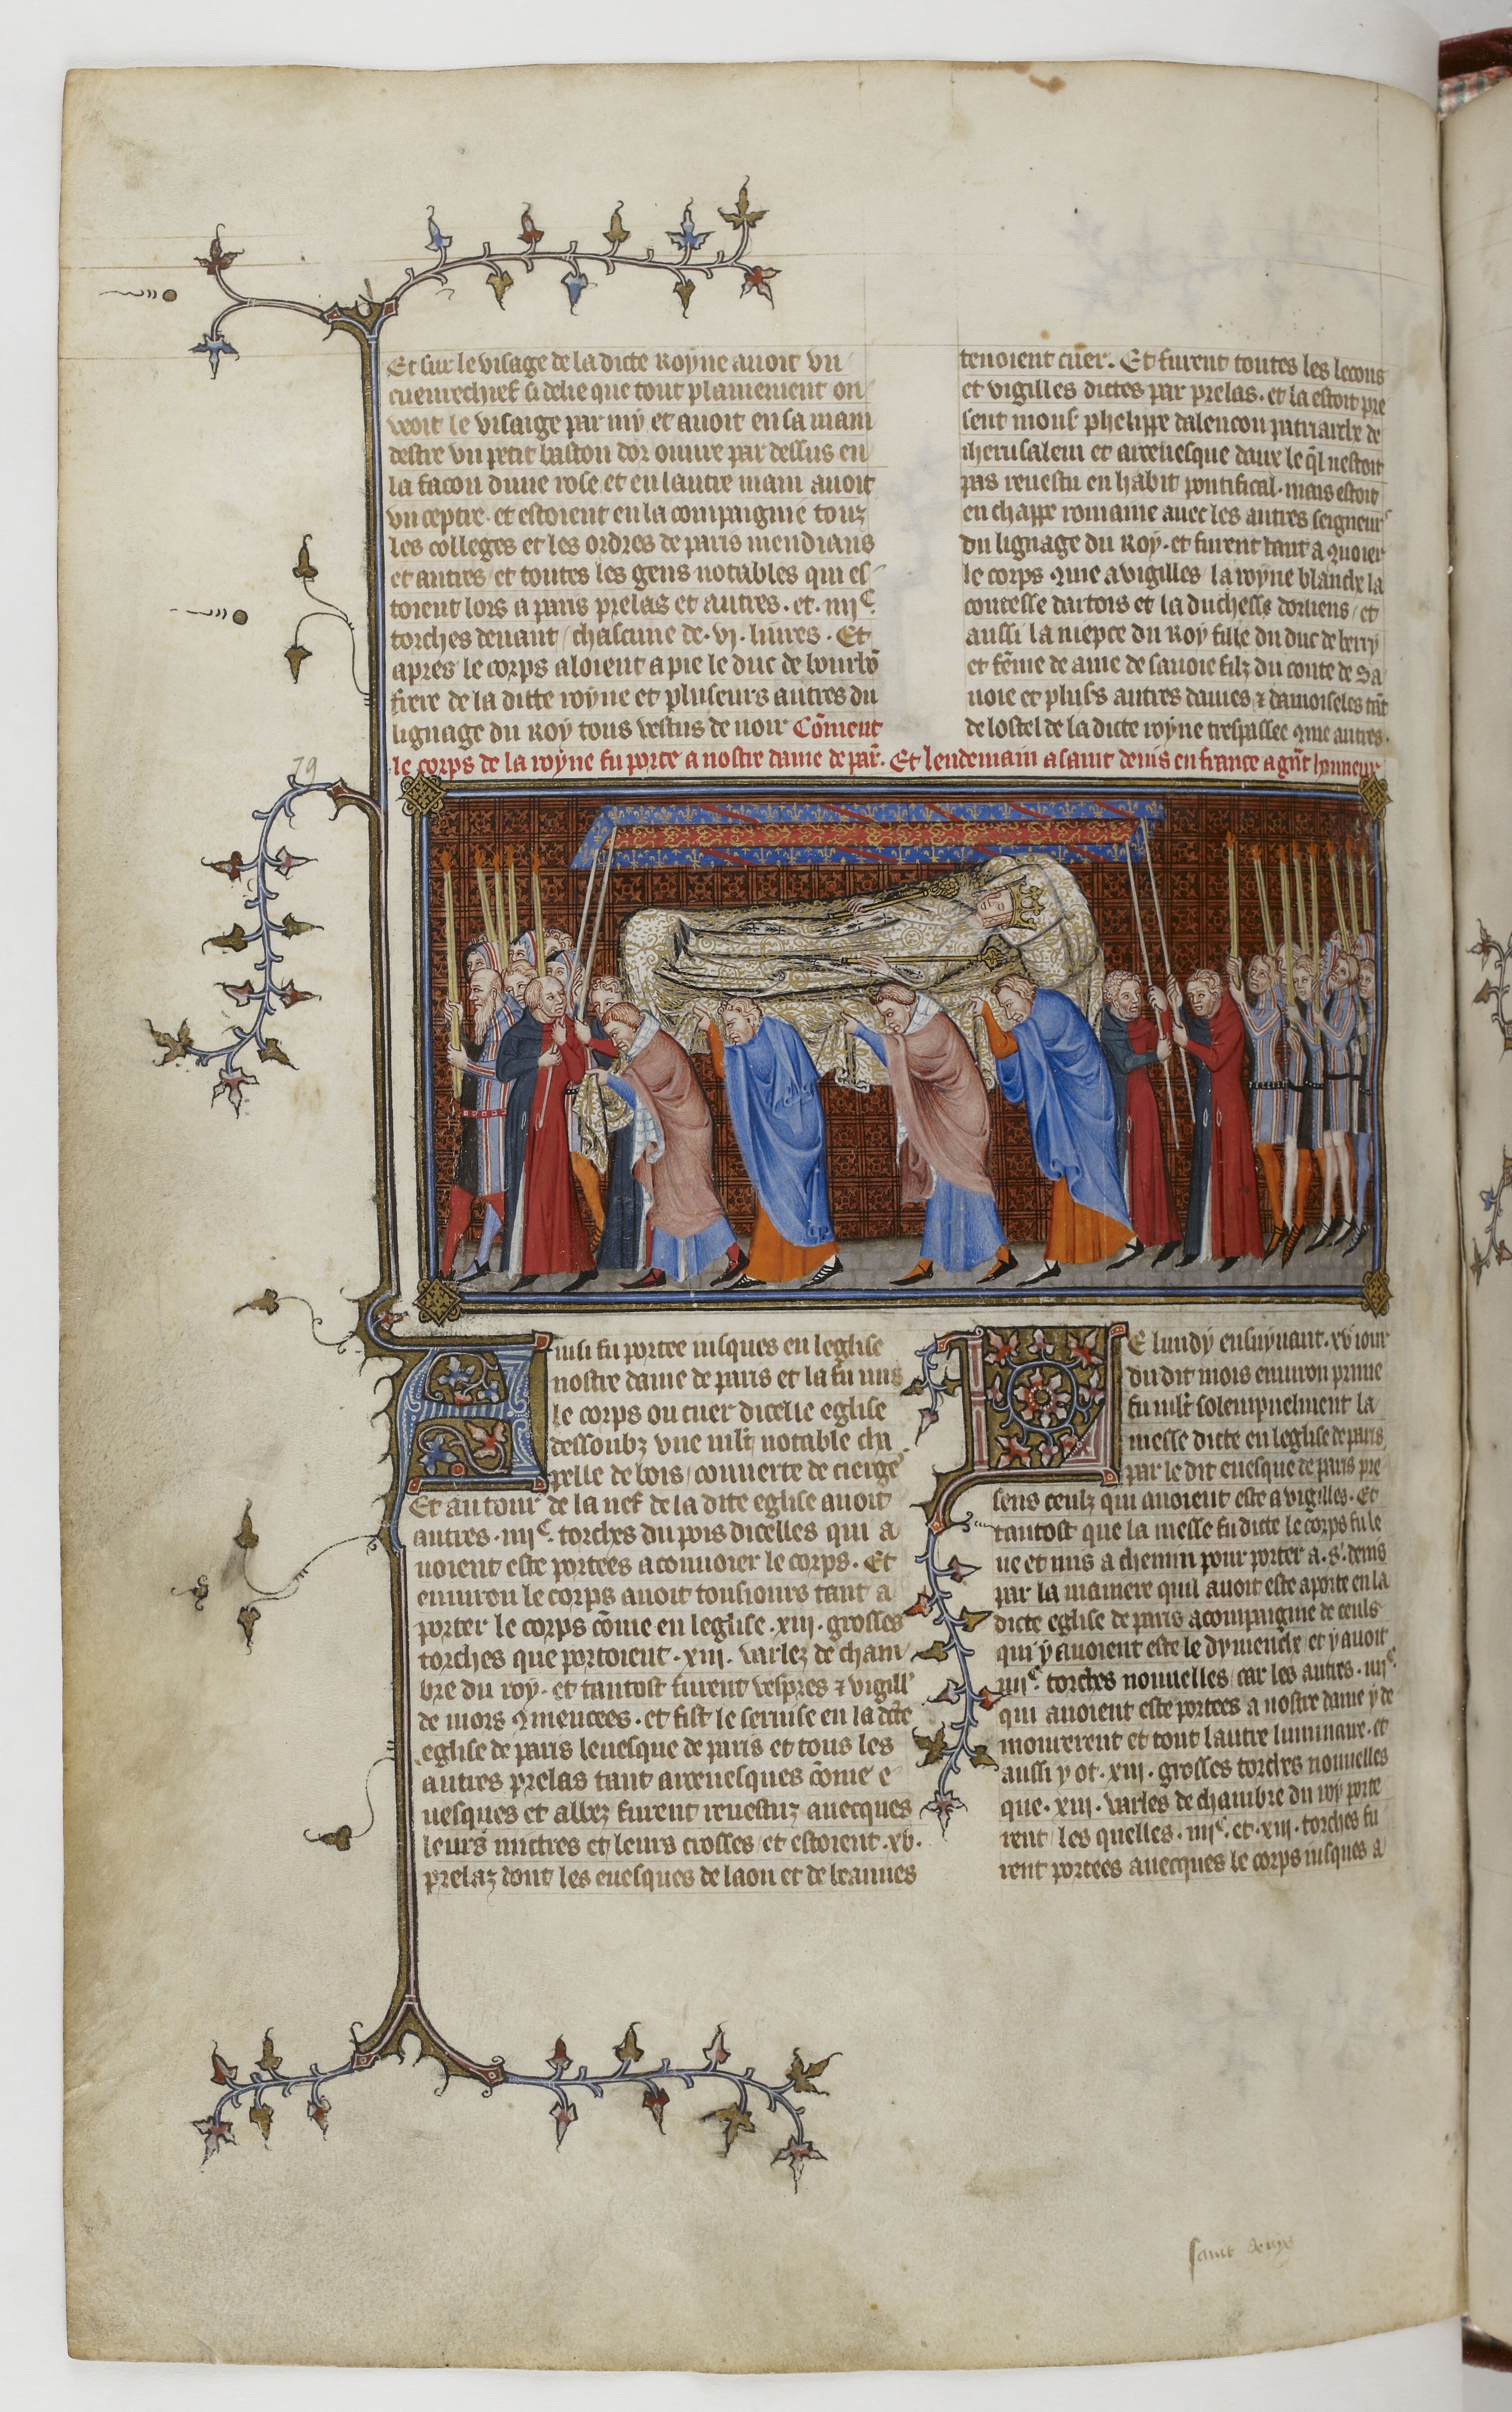 Et sur le visage de la dicte Royne avoit un
cueuvrechief si delie que tout plainement on
veoit le visaige par my et avoit en sa main
destre un petit baston dor ouvre par dessus en
la facon dune rose et en lautre main avoit
un ceptre. et estoient en la compaignie touz
les colleges et les ordres de paris mendians
et autres et toutes les gens notables qui es-
toient lors a paris prelas et autres. et .iiiiᶜ.
torches devant chascune de .vi. livres. Et
apres le corps aloient a pie le duc de bourbõ
frere de la ditte royne et pluseurs autres du
lignage du Roy tous vestus de noir Cõment
le corps de la royne fu porte a nostre dame de par̃. Et lendemain a saint denis en france a gñt honneur
tenoient cuer. Et furent toutes les lecons
et vigilles dictes par prelas. et la estoit pre
sent mons̃ phelippe dalencon patriarche de
iherusalem et arcevesque daux le q̃l nestoit
pas revestu en habit pontifical. mais estoit
en chappe romaine avec les autres seigneurs
du lignage du Roy. et furent tant a ꝯvoier
le corps ꝯme a vigilles la royne blanche la
contesse dartois et la duchesse dorliens et
aussi la niepce du Roy fille du duc de berry
et fẽme de ame de savoie filz du conte de Sa
voie et plus̃s autres dames ⁊ damoiseles tãt
de lostel de la dicte royne trespassee ꝯme autres.
79
Ainsi fu portee iusques en leglise
nostre dame de paris et la fu mis
le corps ou cuer dicelle eglise
dessoubz une mlt̃ notable cha
pelle de bois couverte de cierges
Et autour de la nef de la dite eglise avoit
autres .iiiiᶜ. torches du pois dicelles qui a
voient este portees a convoier le corps. Et
environ le corps avoit tousiours tant a
porter le corps cõme en leglise .xiii. grosses
torches que portoient .xiii. varlez de cham
bre du roy. et tantost furent vespres ⁊ vigill'
de mors ꝯmencees. et fist le servise en la dc̃te
eglise de paris levesque de paris et tous les
autres prelas tant arcevesques cõme e
vesques et abbez furent revestuz avecques
leurs mittres et leurs crosses et estoient .xv.
prelaz dont les evesques de laon et de beauves
Le lundy ensuyvant .xv iour
du dit mois environ prime
fu mlt̃ solempnelment la
messe dicte en leglise de paris
par le dit evesque de paris pre
sens ceulz qui avoient este a vigilles. Et
tantost que la messe fu dicte le corps fu le
ve et mis a chemin pour porter a .s'. denis
par la maniere quil avoit este aporte en la
dicte eglise de paris acompaignie de ceuls
qui y avoient este le dymenche et y avoit
.iiiiᶜ. torches nouvelles car les autres .iiiiᶜ.
qui avoient este portees a nostre dame y de
mourerent et tout lautre luminaire. et
aussi y ot .xiii. grosses torches nouvelles
que .xiii. varles de chambre du roy porte
rent les quelles .iiiiᶜ. et .xiii. torches fu
rent portees avecques le corps iusques a
saint denys